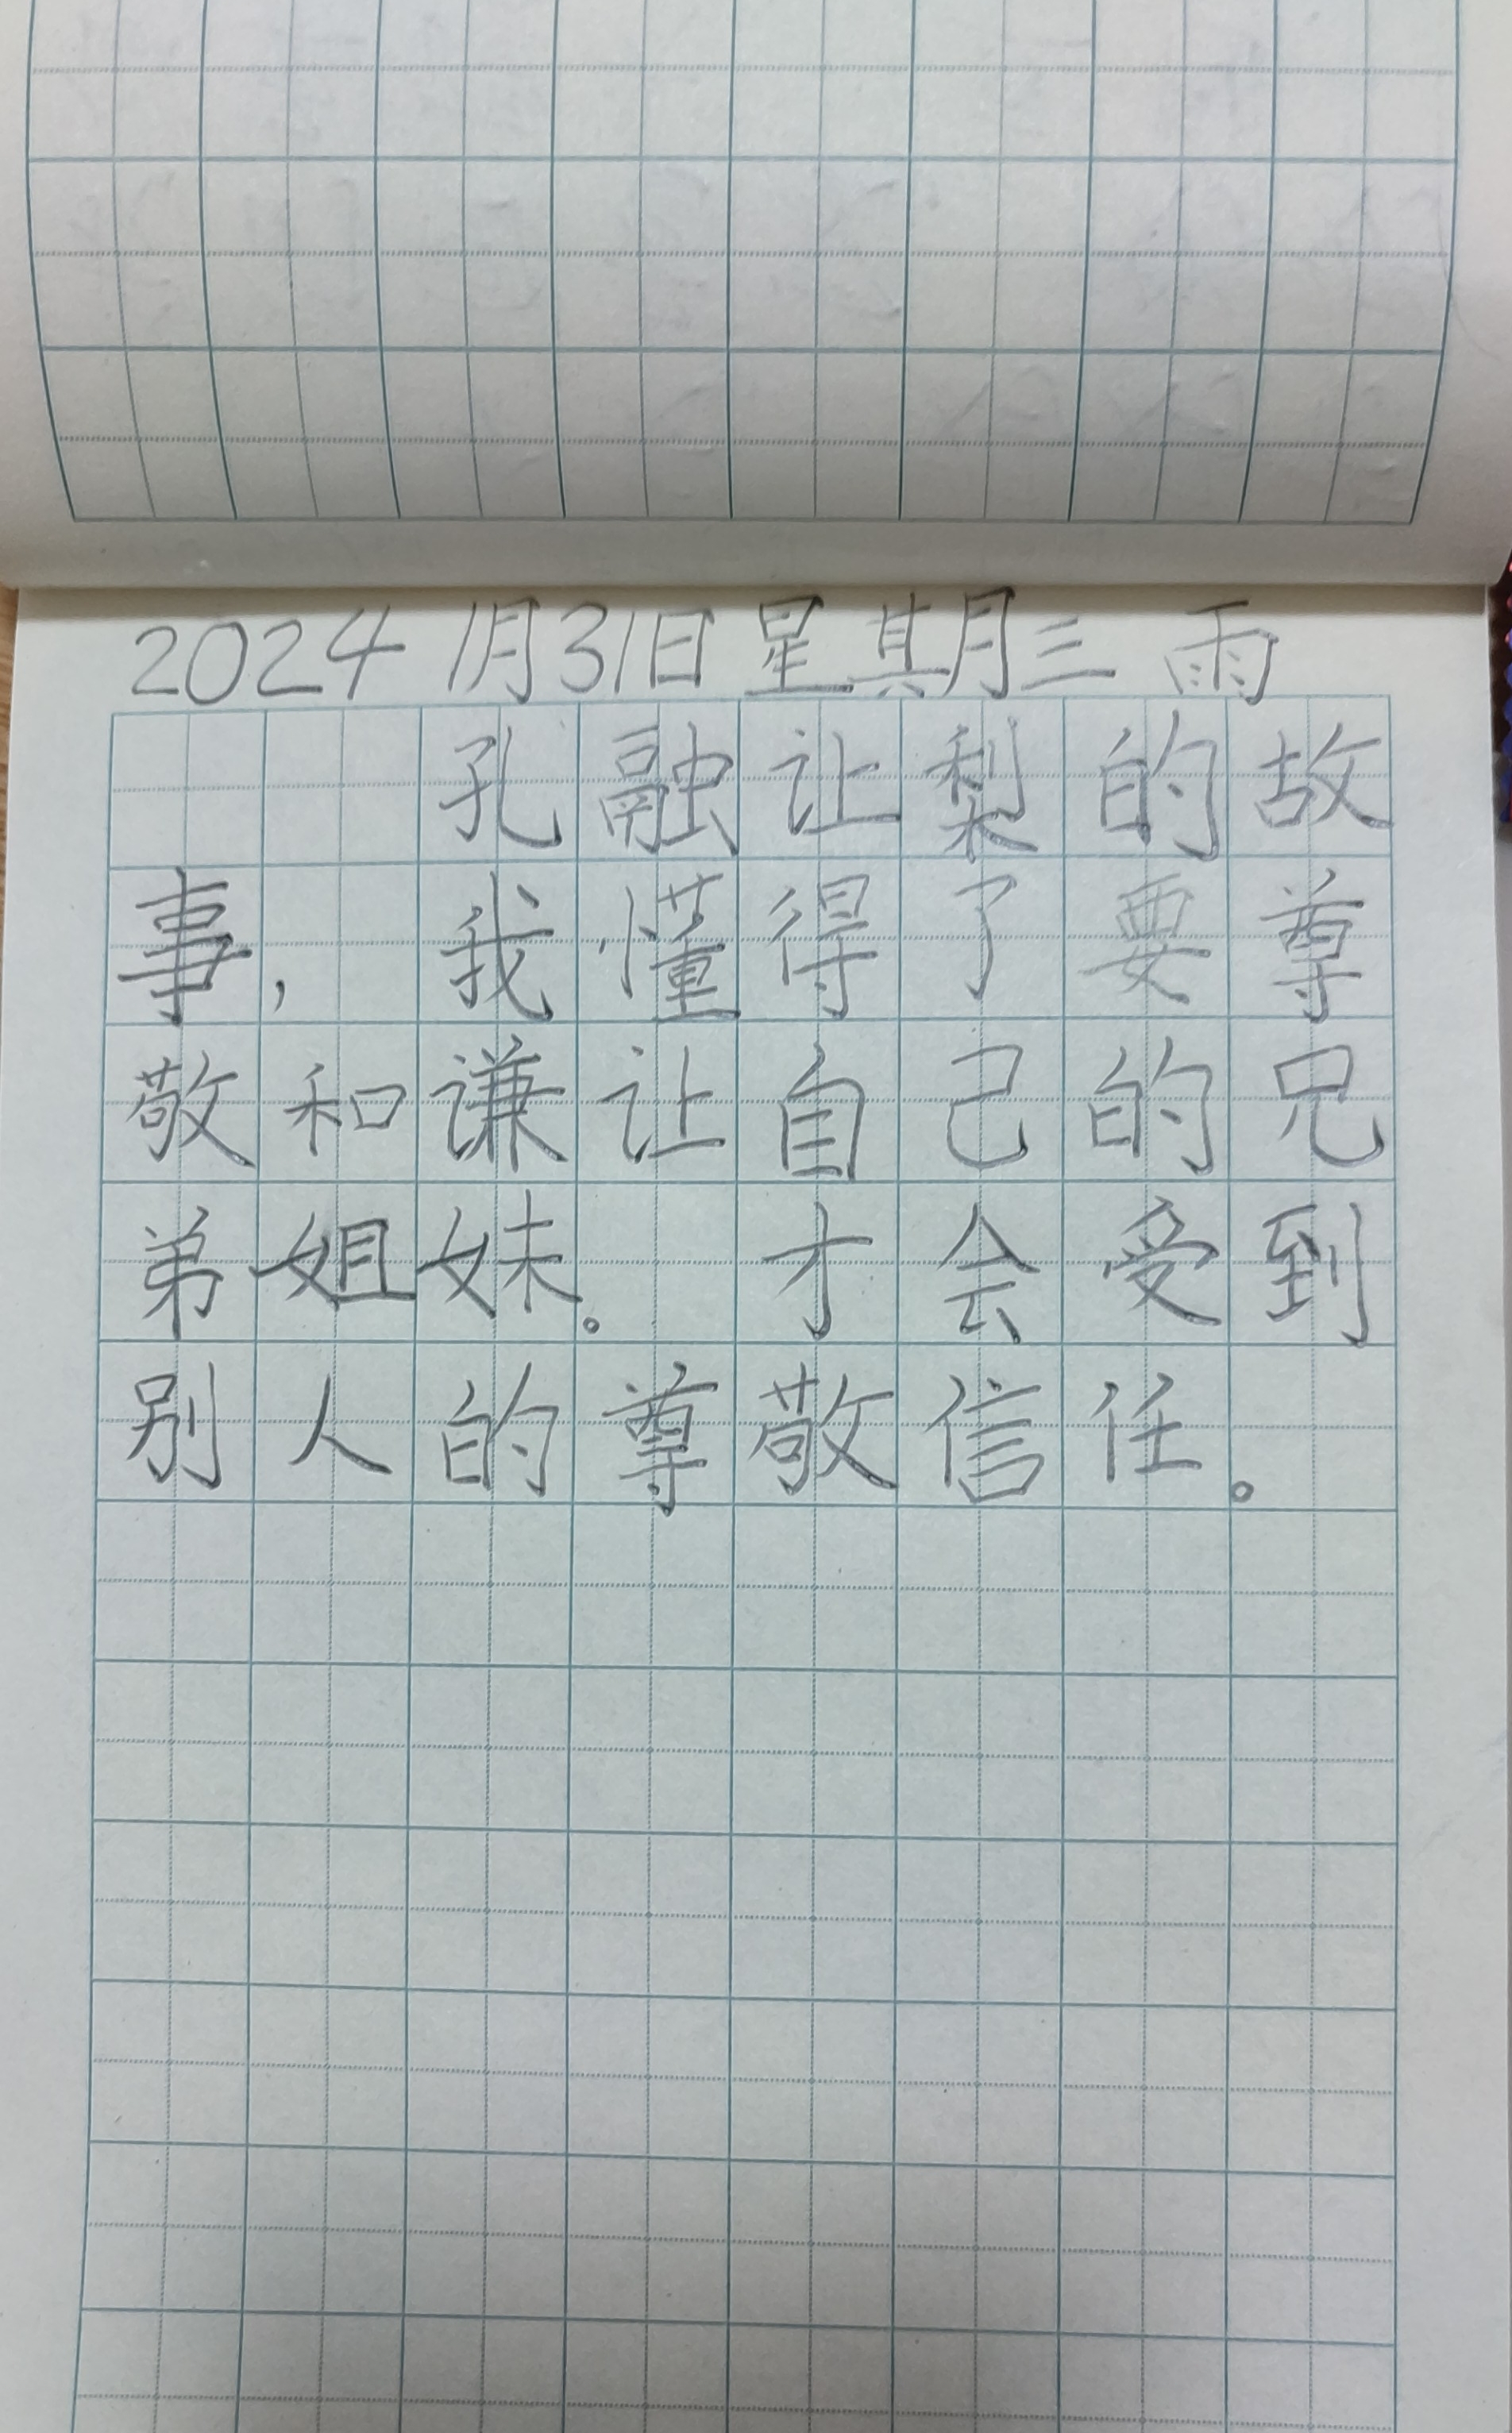 2024 1月31日星期三 雨
孔融让梨的故
事,我懂得了要尊
敬和谦让自己的兄
弟姐妹。才会受到
别人的尊敬信任。